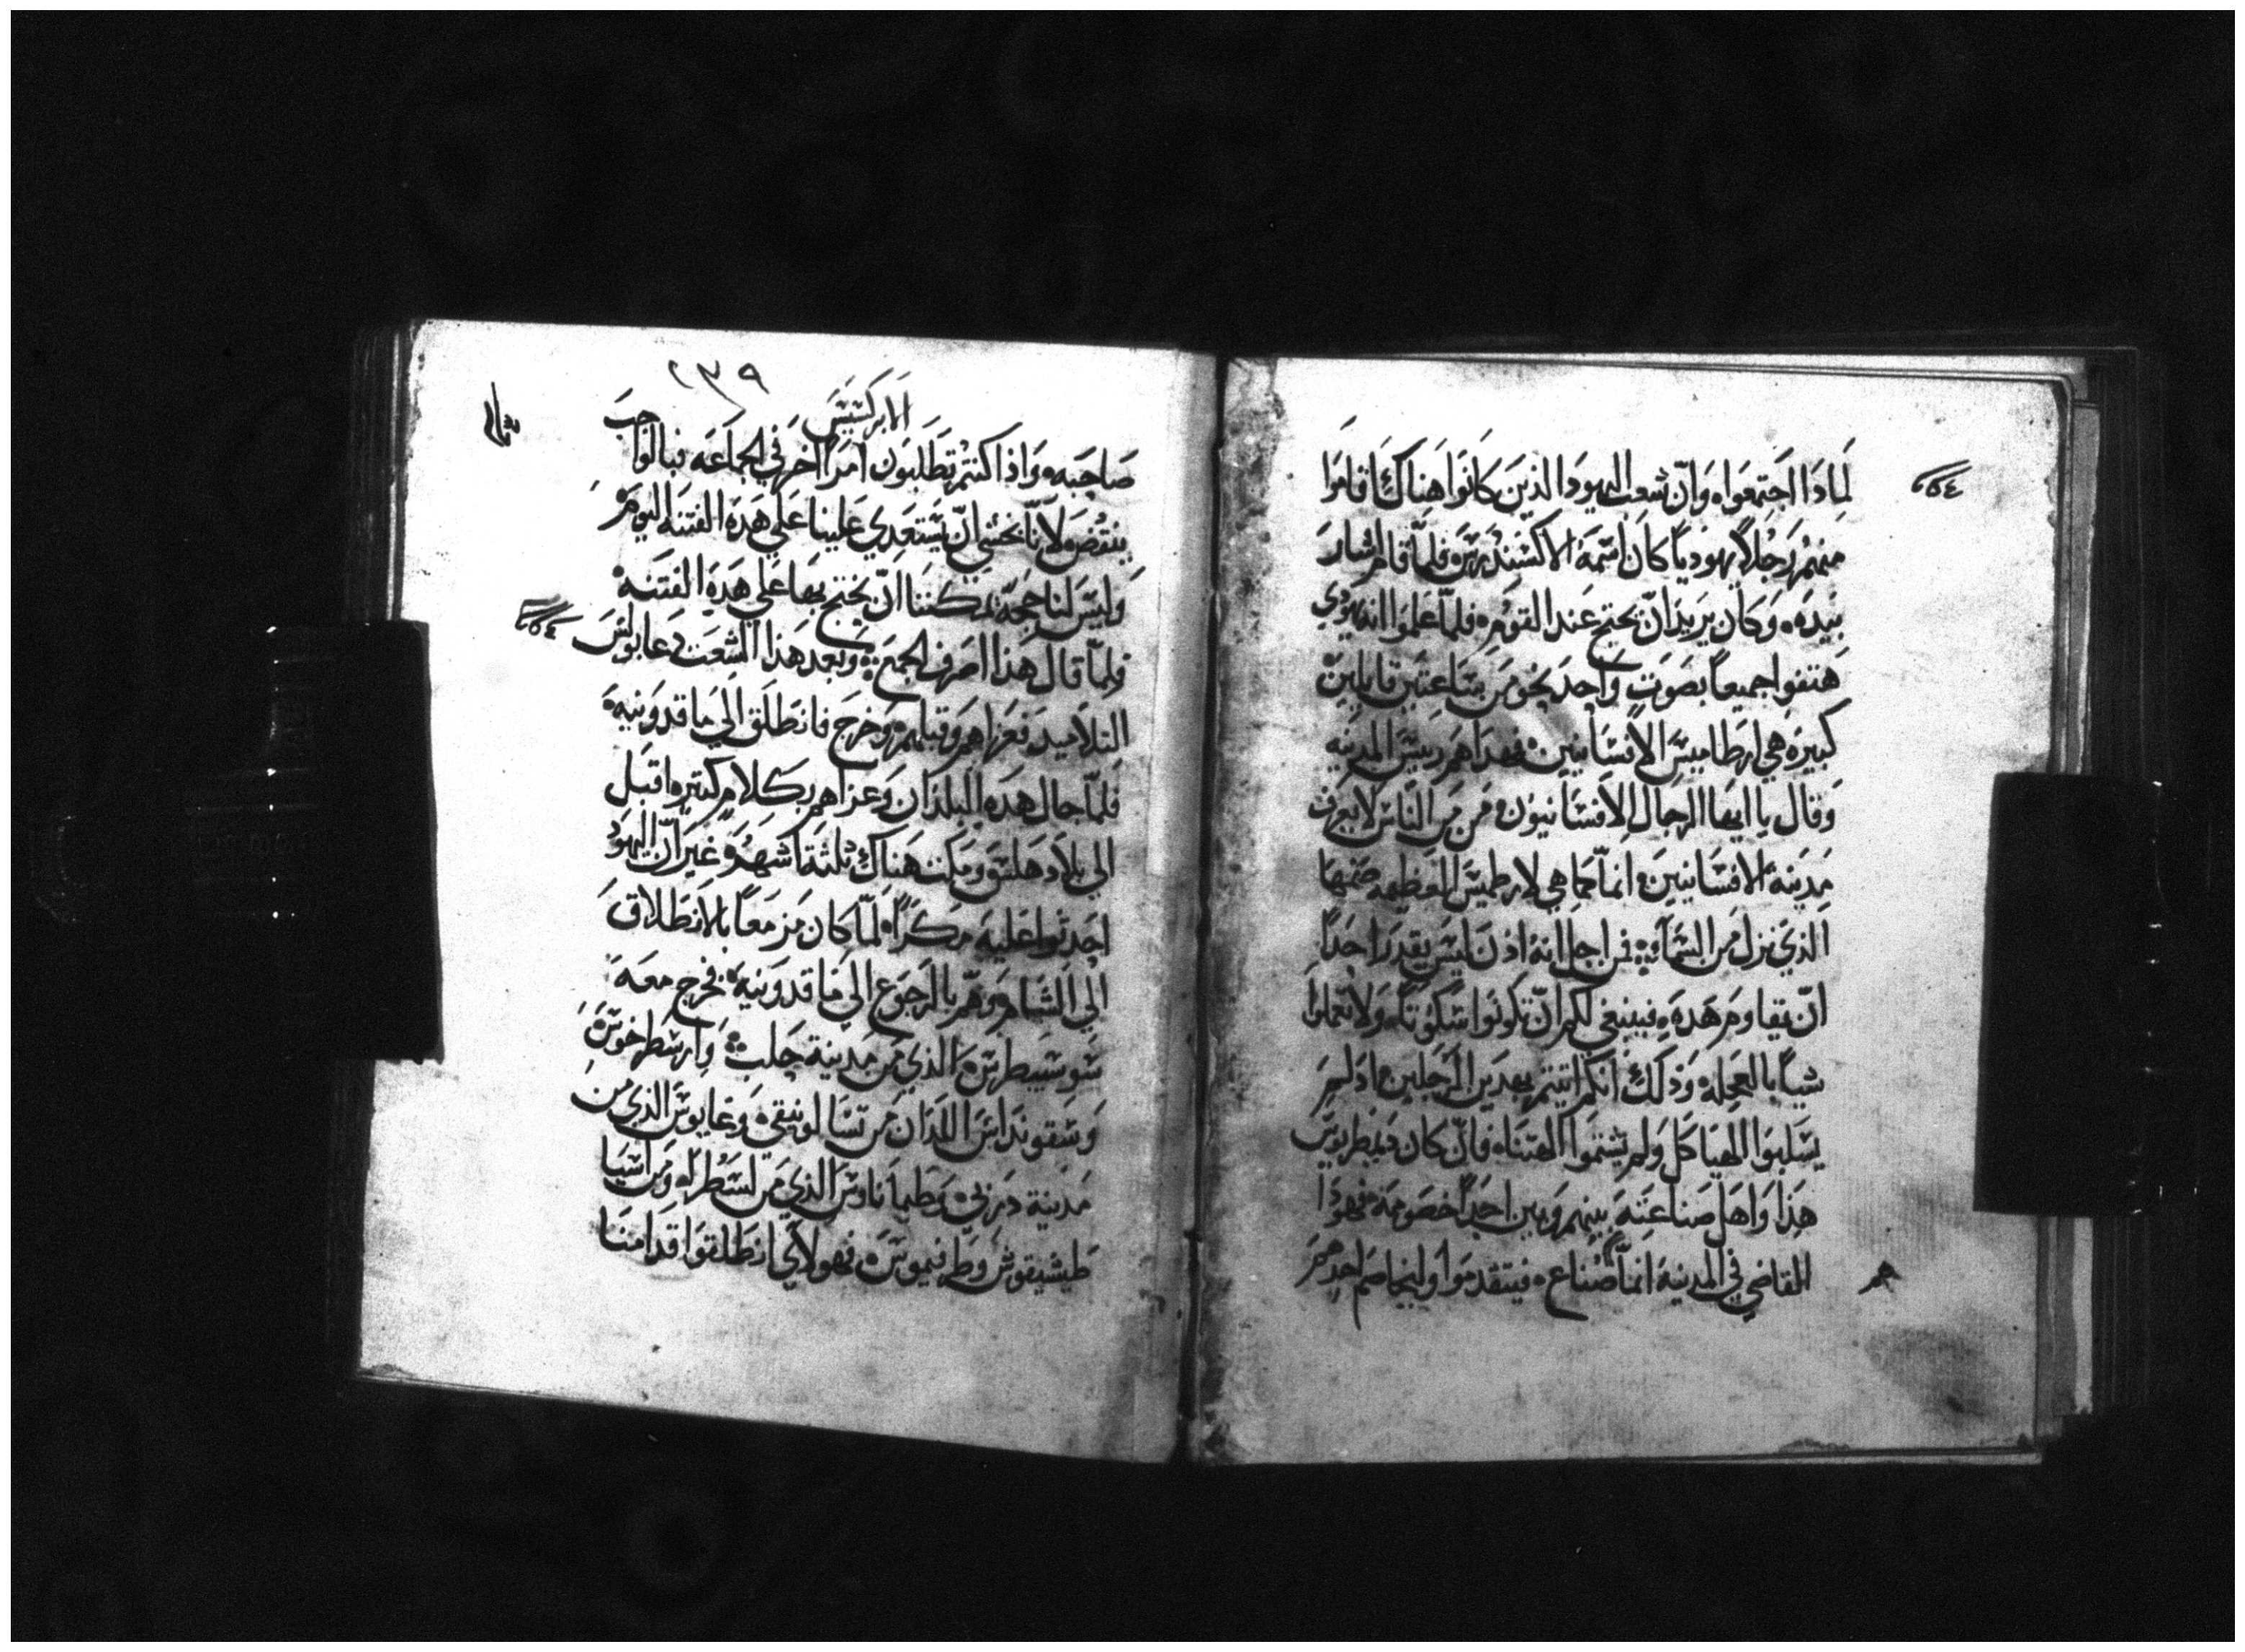 لماذا اجتمعوا وان شعب اليهود الذين كانوا هناك اقاموا
منهم رجلاً يهودياً كان اسمه الاكسندرس فلما قام اشار
بيده وكان يريد ان يحتج عند القوم فلما علموا انه يهودي
هتفوا جميعاً بصوت واحد نحو من ساعتين قايلين
كبيرة هي ارطاميس الافسانيين فهداهم رييس المدينه
وقال يا ايها الرجال الافسانيون من من الناس لا يعرف
مدينة الافسانيين انما هي لارطميس العظيمه صنمها
الذي نزل من السماء فمن اجل انه اذن ليس يقدر احداً
ان يقاوم هذه فينبغي لكم ان تكونوا سكوتاً ولا تعملوا
شياً بالعجله وذلك انكم اتيتم بهدين الرجلين اذ لم
يسلبوا الهياكل ولم يشتموا الهتنا فان كان ديمطريوس
هذا واهل صناعته بينهم وبين احداً خصومة فهوذا
القاضي في المدينة انما صناع فيتقدموا وليخاصم احدهم
٢٣٩
الابركسيس
صاحبه واذا كنتم تطلبون امراً اخر في الجماعه فبالواجب
ينقض لانا نخشى ان يستعدي علينا على هذه الفتنه اليوم
وليس لنا حجة يمكننا ان نحتج بها على هذه الفتنة
فلما قال هذا اصرف الجمع وبعد هذا الشعت دعا بولس
التلاميد فعزاهم وقبلهم وخرج فانطلق الي ماقدونيه
فلما جال هذه البلدان وعزاهم بكلام كثير اقبل
الي بلاد هلس ومكث هناك ثلثة اشهر غير ان اليهود
احدثوا عليه مكراً لما كان مزمعاً بالانطلاق
الي الشام وهم بالرجوع الي ماقدونية فخرج معه
شوسيبطرس الذي من مدينة حلب وارسطرخوس
وسقونداس اللذان من تسالونيقي وغايوس الذي من
مدينة دربي وطيماتاوس الذي من لسطرا ومن اسيا
طيشيقوس وطرفيموس فهولاي انطلقوا قدامنا